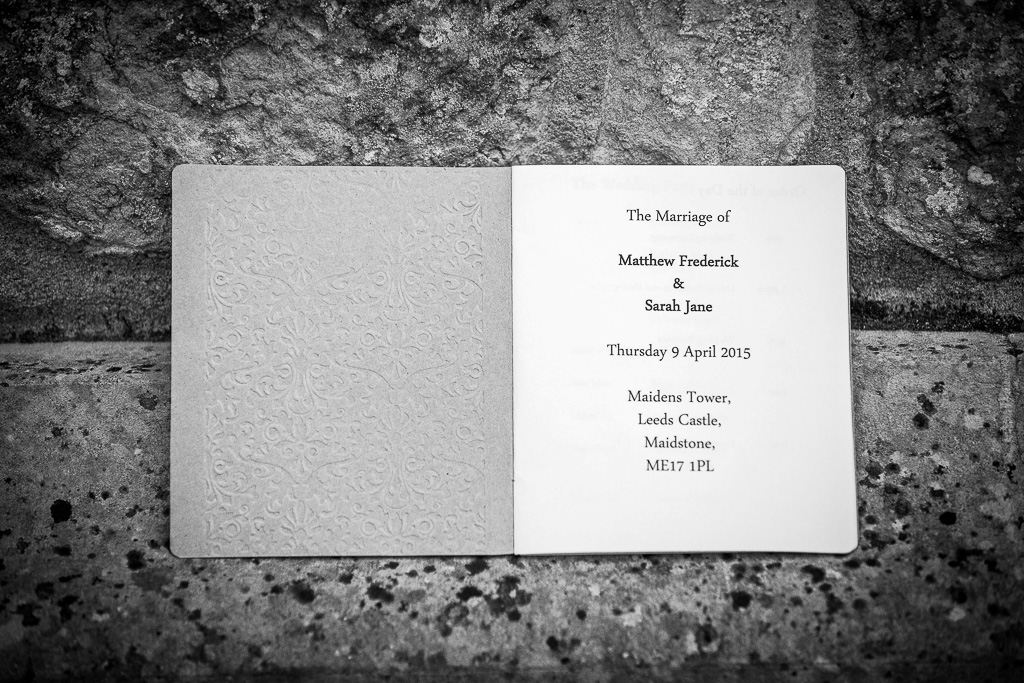 The Marriage of
Matthew Frederick
&
Sarah Jane
Thursday 9 April 2015
Maidens Tower,
Leeds Castle,
Maidstone,
ME17 1PL